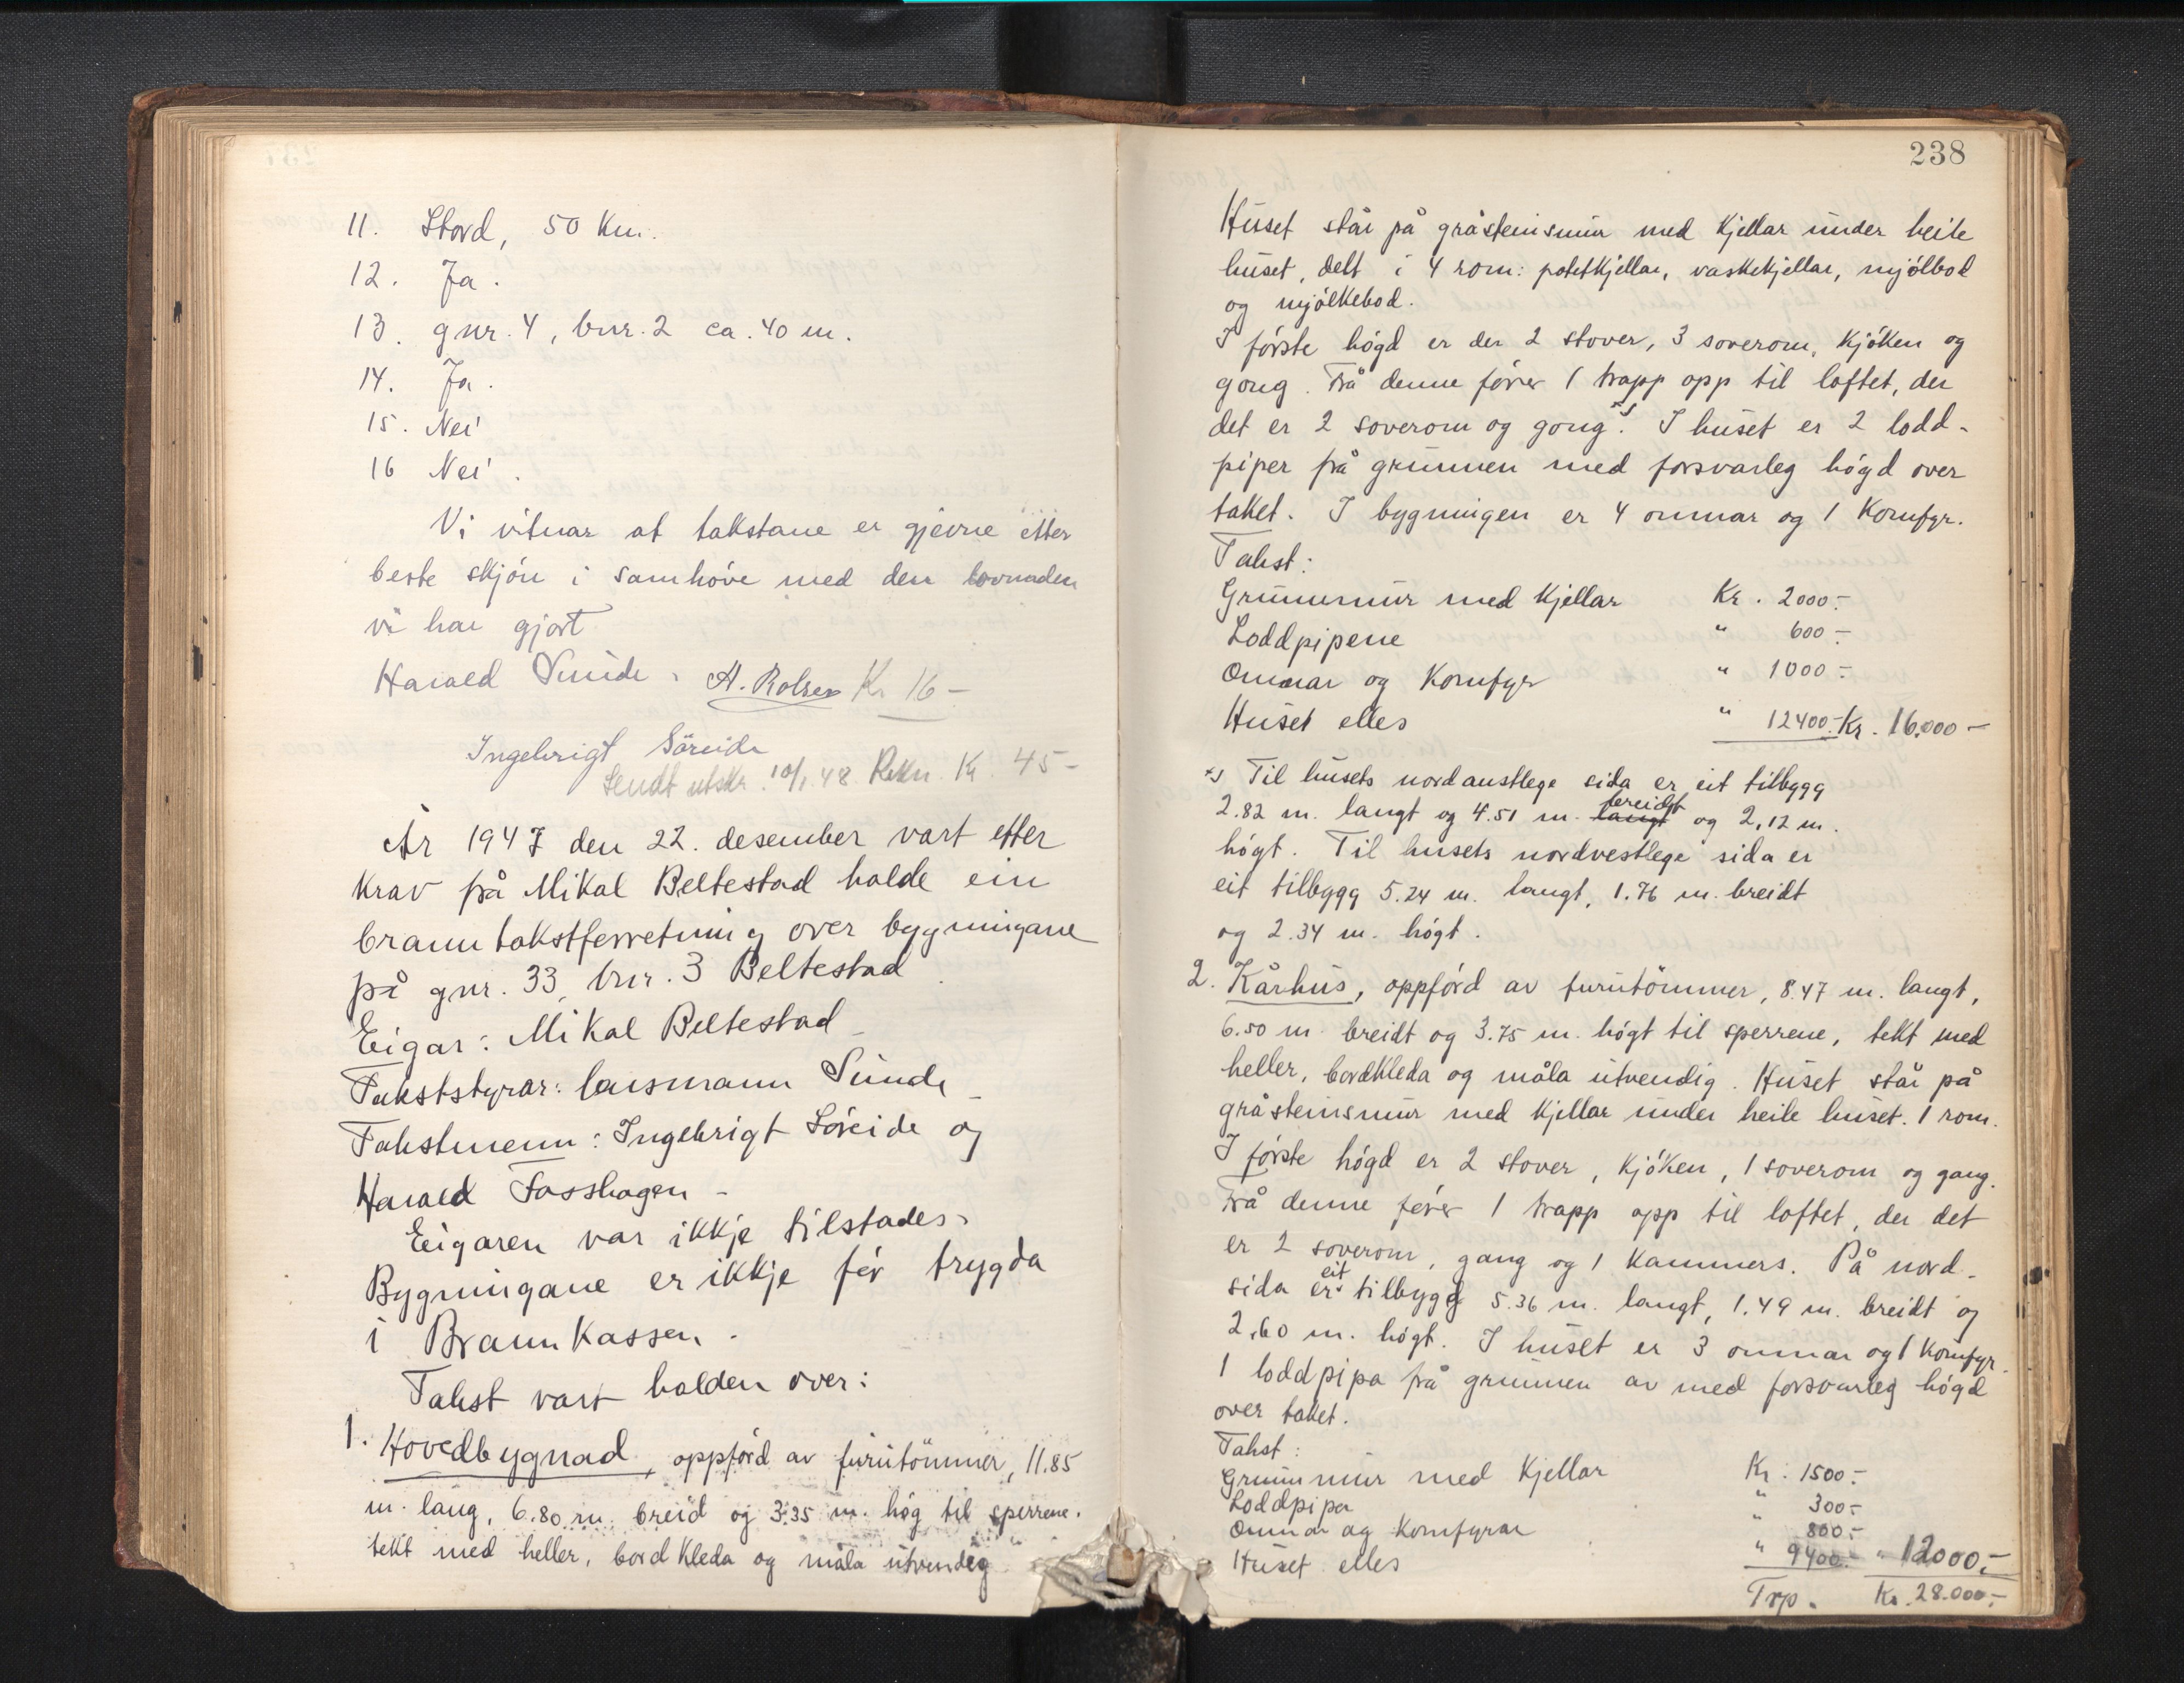 11. Stord, 50 km.
12. Ja.
13. gnr. 4, bnr. 2 ca. 40 m.
14. Ja.
15. Nei
16 Nei.
Vi vitnar at takstane er gjevne etter
beste skjön i samhöve med den lovnaden
vi har gjort
Harald Sunde. A. Rolsen Kr 16-
Ingebrigt Söreide
Sendt utskr. 10/1 48. Rekn. Kr. 45-
År 1947 den 22. desember vart etter
krav frå Mikal Beltestad halde ein
branntakstforretning over bygningane
på gnr. 33, bnr. 3 Beltestad.
Eigar: Mikal Beltestad
Takststyrar: lensmann Sunde
Takstmenn: Ingebrigt Söreide og
Harald Fosshagen -
Eigaren var ikkje tilstades.
Bygningane er ikkje för trygda
i Brannkassen.
Takst vart halden over:
1. Hovedbygnad, oppförd av furutömmer, 11.85
m. lang, 6.80 m. breid og 3.35 m. høg til sperrene.
tekt med heller, bordkleda og måla utvendig
238
Huset står på gråsteinsmur med kjellar under heile
huset, delt i 4 rom: potetkjellar, vaskekjellar, mjölbod
og mjölkebod.
I förste högd er der 2 stover, 3 soverom, kjöken og
gong. Frå denne förer 1 trapp opp til loftet, der
det er 2 soverom og gong. I huset er 2 lodd-
piper frå grunnen med forsvarleg högd over
taket. I bygningen er 4 omnar og 1 komfyr.
Takst:
Grunnmur med kjellar Kr. 2000.-
Loddpipene " 600.-
Omnar og komfyr " 1000.-
Huset elles " 12400.- Kr. 16.000 -
Til husets nordaustlege sida er eit tilbygg
2.82 m. langt og 4.51 m. langt breidt og 2,12 m.
högt. Til husets nordvestlege sida er
eit tilbygg 5.24 m. langt, 1.76 m. breidt
og 2.34 m. högt.
2. Kårhus, oppförd av furutömmer, 8.47 m. langt,
6.50 m. breidt og 3.75 m. högt til sperrene, tekt med
heller, bordkleda og måla utvendig. Huset står på
gråsteinsmur med kjellar under heile huset. 1 rom.
I förste högd er 2 stover, kjöken, 1 soverom og gang.
Frå denne förer 1 trapp opp til loftet, der det
er 2 soverom, gang og 1 kammers. På nord-
sida er eit tilbygg 5.36 m. langt, 1.49 m. breidt og
2.60 m. högt. I huset er 3 omnar og 1 komfyr.
1 loddpipa frå grunnen av med forsvarleg högd
over taket.
Takst:
Grunnmur med kjellar Kr. 1500.-
Loddpipa " 300.-
Omnar og komfyrar " 800.-
Huset elles " 9400.- " 12000.-
Trp. Kr. 28.000.-